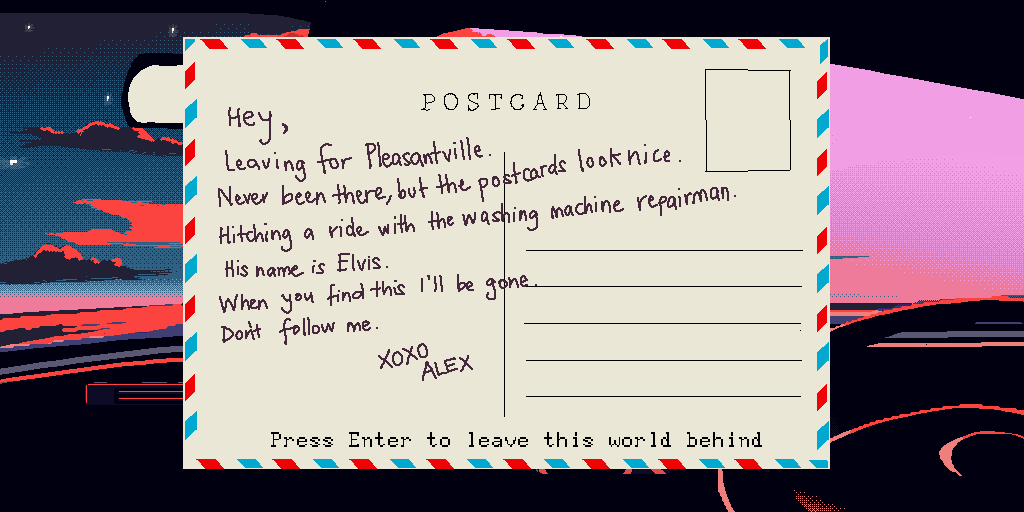 POSTCARD
Hey,
Leaving for Pleasantville.
Never been there, but the postcards look nice.
Hitching a ride with the washing machine repairman.
His name is Elvis.
When you find this I'll be gone.
Don't follow me.
XOXO
ALEX
Press Enter to leave this world behind